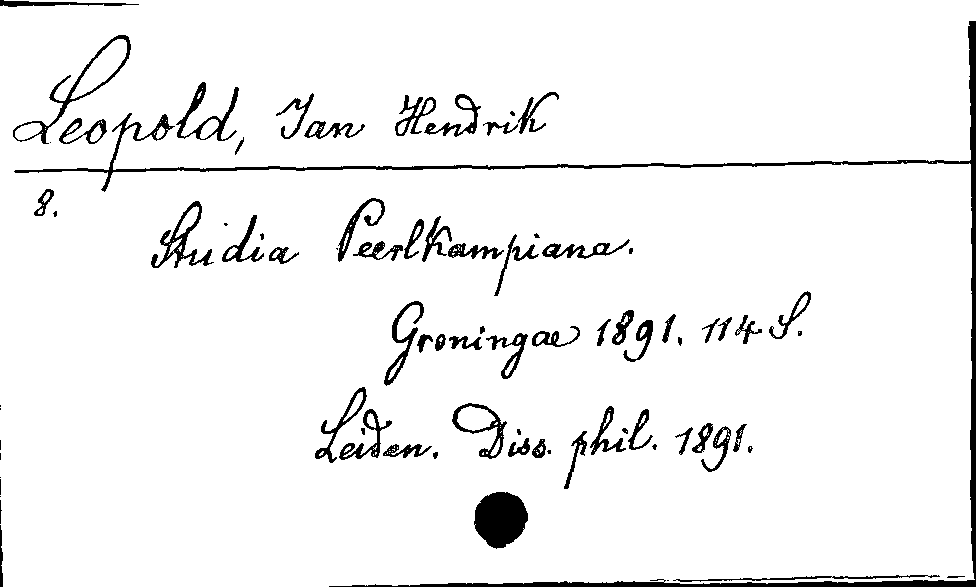 Leopold, Jan Hendrik
8.
Studia Peerlkampiana.
Groningae 1891. 114 S.
Leiden. Diss. phil. 1891.